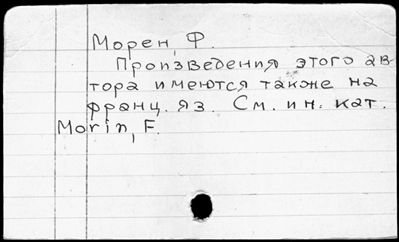 Морен, Ф.
Произведения этого ав-
тора имеются также на
франц. яз. См. ин. кат.
Morin, F.